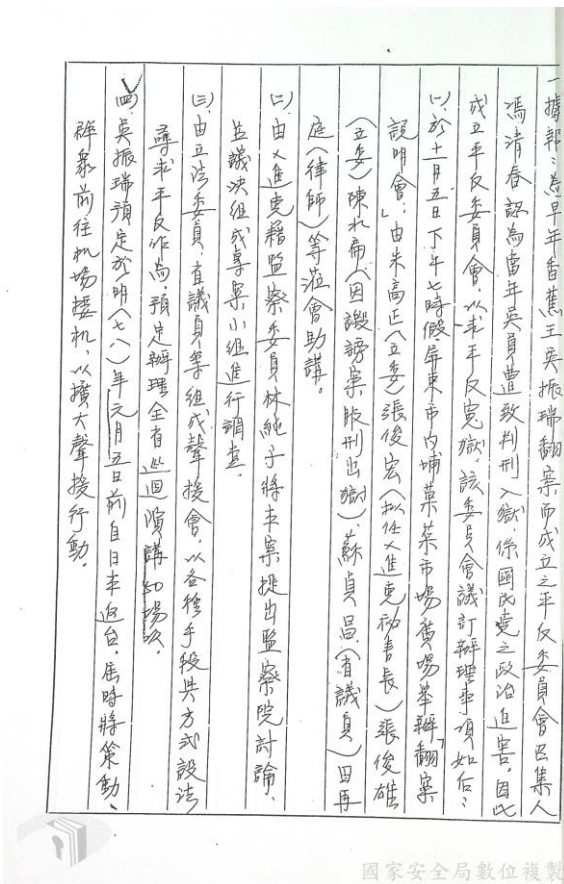 一據報：為早年香蕉王吳振瑞翻案而成立之平反委員會召集人
馮清春認為當年吳員遭致判刑入獄，係國民黨之政治迫害，因此
成立平反委員會，以求平反冤獄。該委員會議訂辦理事項如后：
㈠於十一月五日下午七時假屏東市內埔菓菜市場廣場舉辦「翻案
說明會」，由朱高正（立委）張俊宏（拟任乂進党祕書長）張俊雄
（立委）陳水扁（因譭謗案服刑出獄）、蘇貞昌（省議員）田再
庭（律師）等蒞會助講。
㈡由乂進党籍監察委員林純子將本案提出監察院討論，
並議決組成專案小組進行調查。
㈢由立法委員、省議員等組成聲援會，以各種手段與方式設法
尋求平反作為，預定辦理全省巡迴演講50場次。
㈣吳振瑞預定於明（七八）年元月五日前自日本返台，屆時將策動
群眾前往机場接机，以擴大聲援行動。
國家安全局數位複製